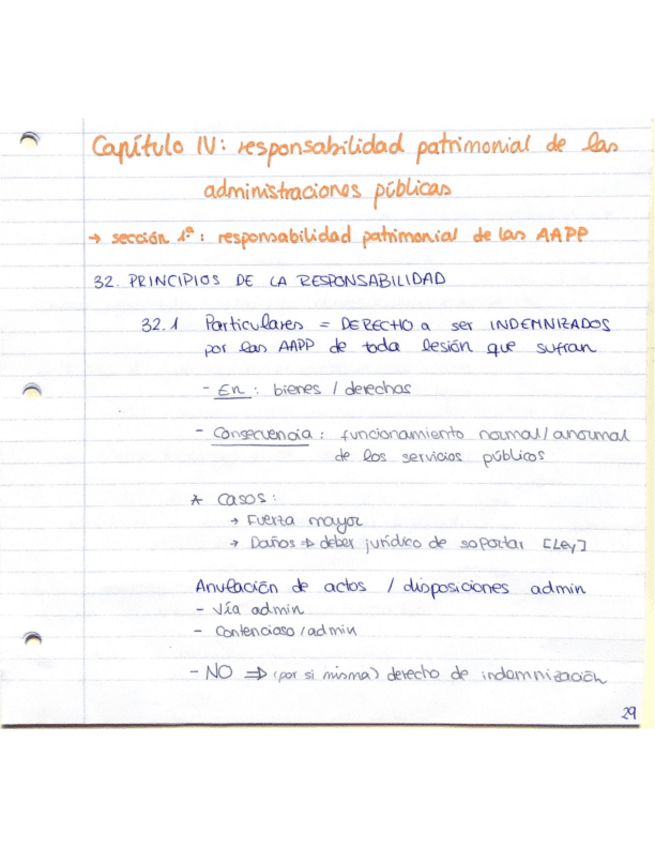 Capítulo IV: responsabilidad patrimonial de las
administraciones públicas
→ sección 1ª: responsabilidad patrimonial de las AAPP
32. PRINCIPIOS DE LA RESPONSABILIDAD
32.1 Particulares = DERECHO a ser INDEMNIZADOS
por las AAPP de toda lesión que sufran
- En: bienes / derechos
- Consecuencia: funcionamiento normal/anormal
de los servicios públicos
* Casos:
→ Fuerza mayor
→ Daños ⇒ deber jurídico de soportar [Ley]
Anulación de actos / disposiciones admin
- Vía admin
- Contencioso/admin
- NO ⇒ (por si misma) derecho de indemnización
29